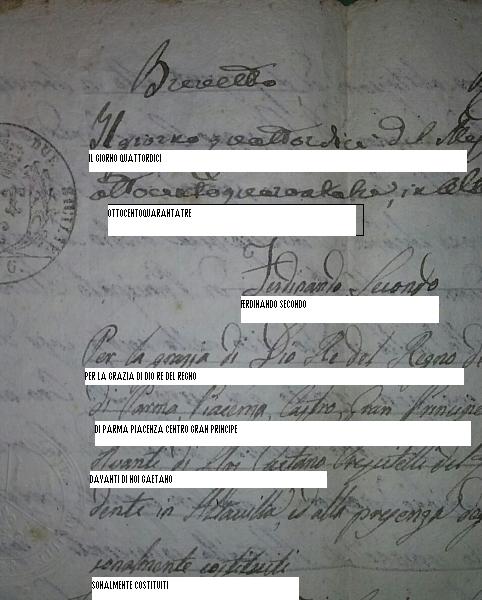 Brevetto
Il giorno quattordici del
IL GIORNO QUATTORDICI
ottocentoquarantatre, in
OTTOCENTOQUARANTATRE
Ferdinando Secondo
FERDINANDO SECONDO
Per la grazia di Dio Re del Regno
PER LA GRAZIA DI DIO RE DEL REGNO
di Parma Piacenza, Castro, Gran Principe
DI PARMA PIACENZA CENTRO GRAN PRINCIPE
Avanti di Noi Gaetano
DAVANTI DI NOI GAETANO
dente in Altavilla, ed alla presenza
sonalmente costituiti
SONALMENTE COSTITUITI